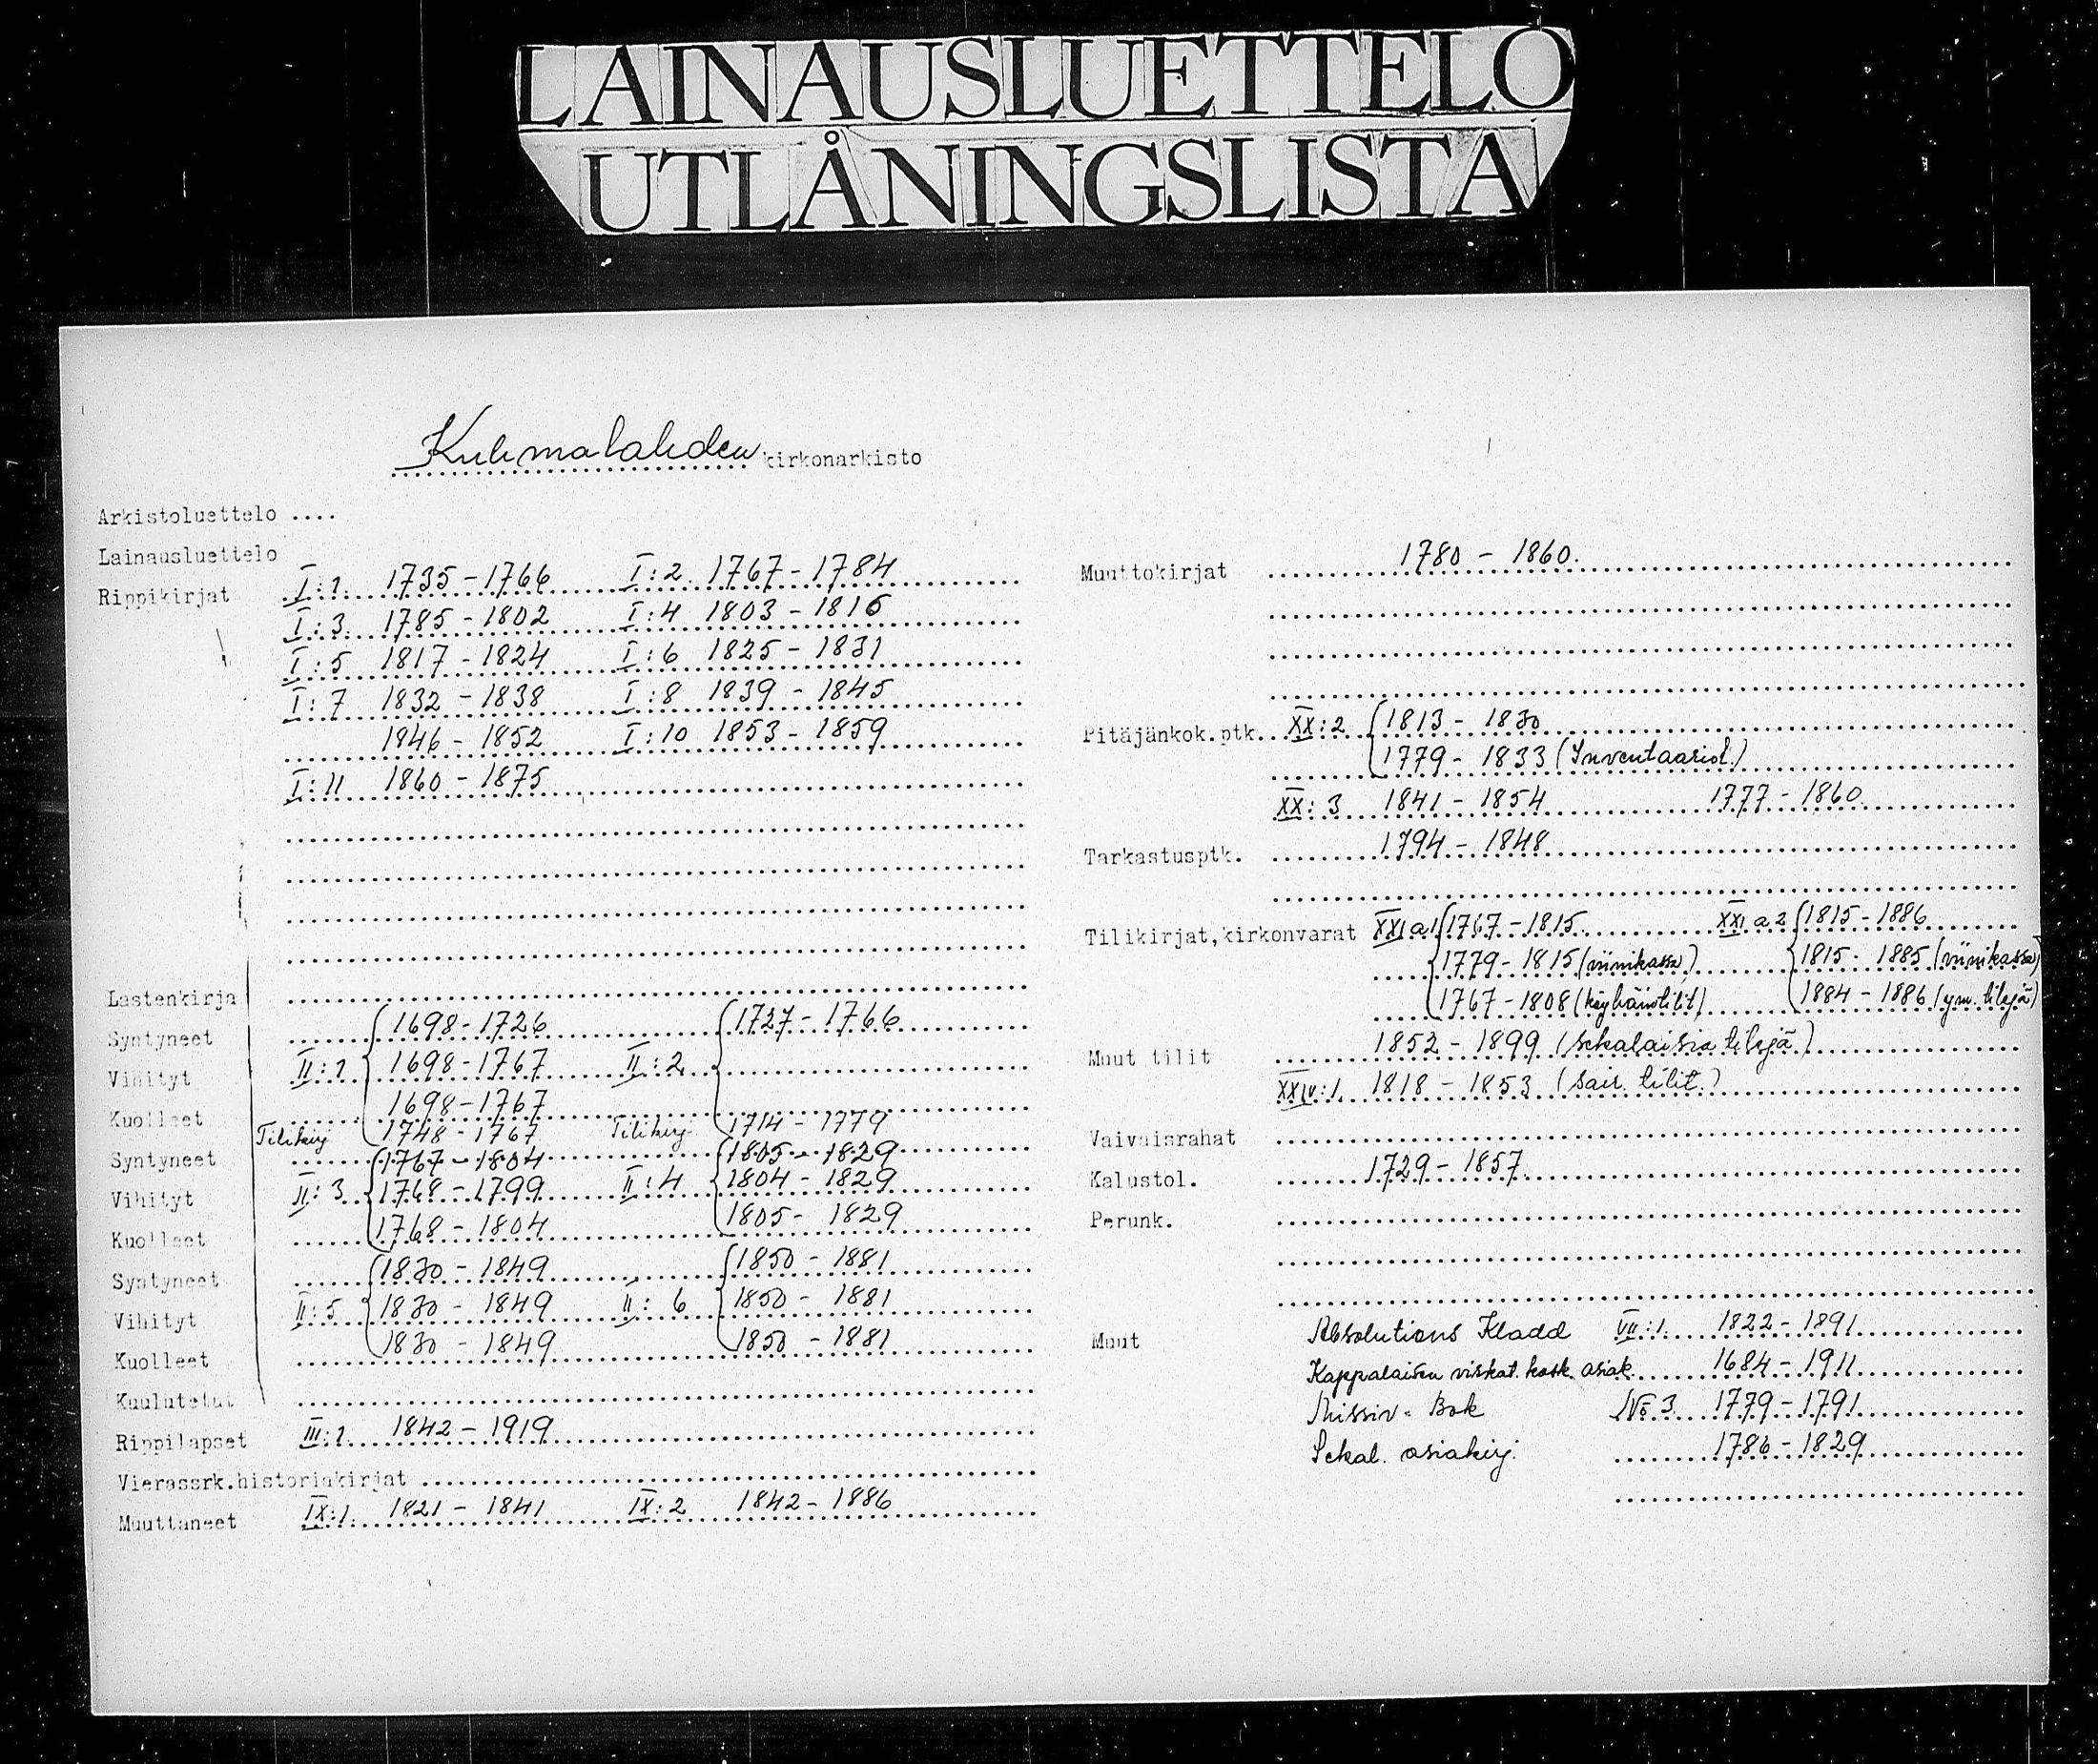 LAINAUSLUETTELO
UTLÅNINGSLISTA
Kuhmalahden kirkonarkisto
Arkistoluettelo ....
Lainausluettelo
Rippikirjat I:1. 1735-1766 I:2. 1767-1784
I:3. 1785-1802 I:4 1803-1816
I:5 1817-1824 I:6 1825-1831
I:7 1832-1838 I:8 1839-1845
1846-1852 I:10 1853-1859
I:11 1860-1875
Lastenkirja
Syntyneet 1698-1726 1727-1766
Vihityt II:1 1698-1767 II:2
Kuolleet 1698-1767
Tilikirj 1748-1767 Tilikirj 1714-1779
Syntyneet 1767-1804 1805-1829
Vihityt II:3 1768-1799 II:4 1804-1829
Kuolleet 1768-1804 1805-1829
Syntyneet 1830-1849 1850-1881
Vihityt II:5 1830-1849 II:6 1850-1881
Kuolleet 1830-1849 1850-1881
Kuulutetut
Rippilapset III:1 1842-1919
Vierassrk.historiakirjat
Muuttaneet IX:1. 1821-1841 IX:2 1842-1886
Muuttokirjat 1780-1860.
Pitäjänkok.ptk. XX:2 1813-1830
1779-1833 (Inventaariol.)
XX:3 1841-1854 1777-1860
Tarkastusptk. 1794-1848
Tilikirjat,kirkonvarat XXI a1 1767-1815 XXI a2 1815-1886
1779-1815 (viinikassa) 1815-1885 (viinikassa)
1767-1808 (köyhäintilit) 1884-1886 (ym. tilejä)
Muut tilit 1852-1899 (sekalaisia tilejä)
XXIV:1 1818-1853 (sair. tilit.)
Vaivaisrahat
Kalustol. 1729-1857
Perunk.
Muut Absolutions Kladd VII:1. 1822-1891
Kappalaisen virkat. kosk. asiak. 1684-1911
Missiv-Bok No 3 1779-1791
Sekal. asiakirj. 1786-1829